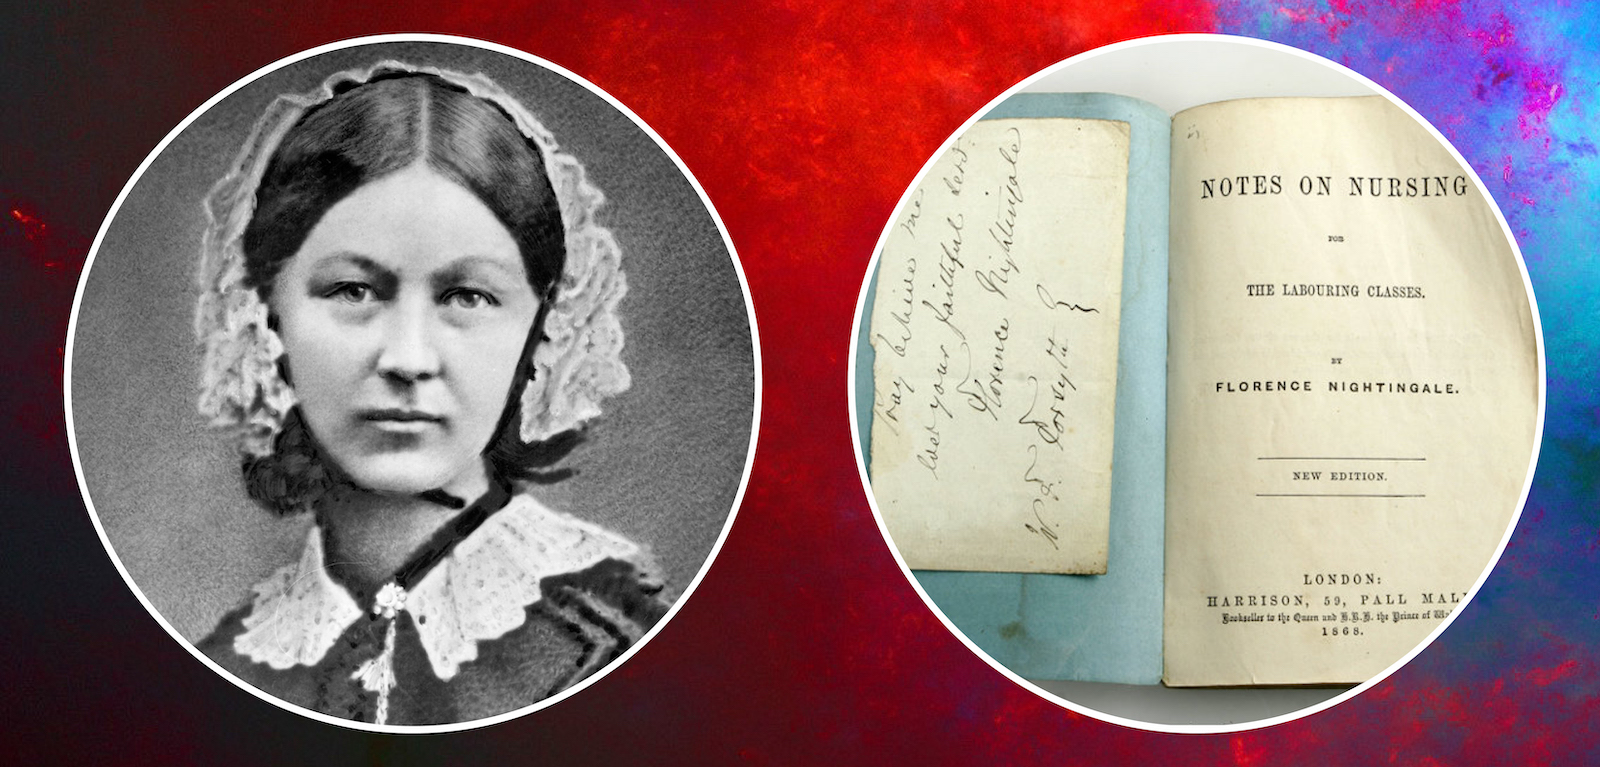 Pray believe me
ever your faithful serv.
Florence Nightingale
W. F. Forsyth }
NOTES ON NURSING
FOR
THE LABOURING CLASSES.
BY
FLORENCE NIGHTINGALE.
NEW EDITION.
LONDON:
HARRISON, 59, PALL MALL
Bookseller to the Queen and H.R.H. the Prince of
1868.